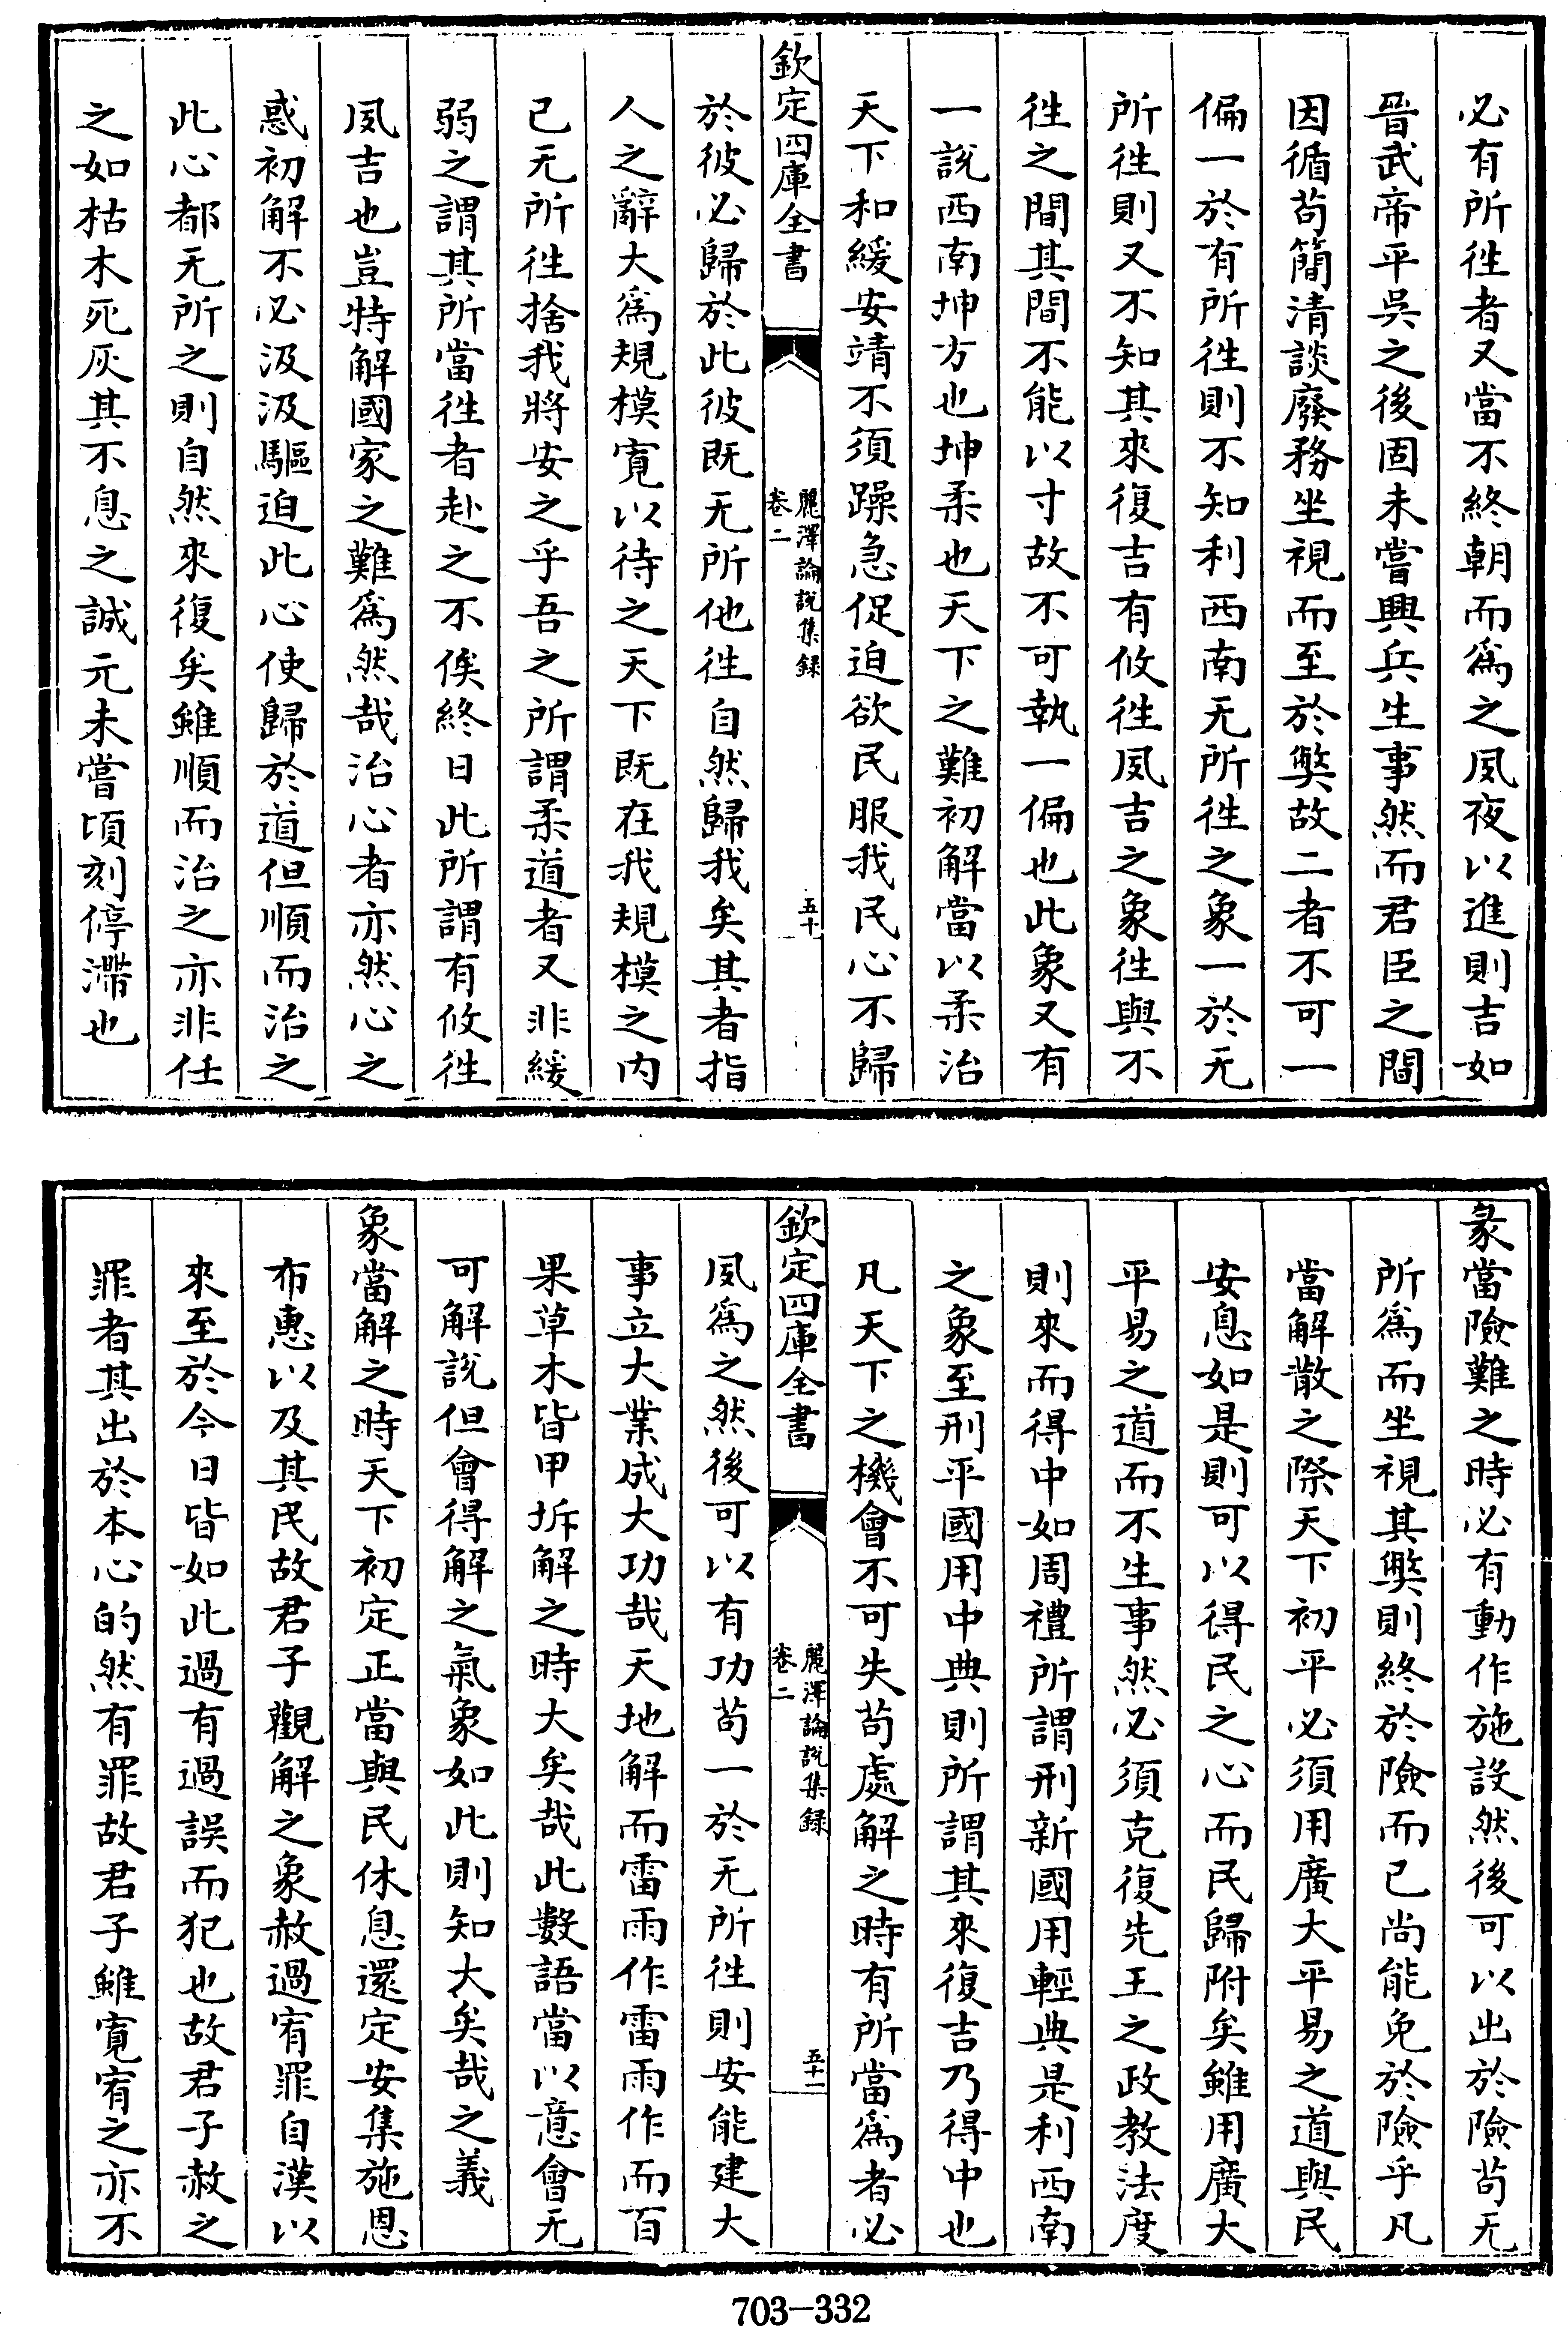 必有所徃者又當不終朝而為之夙夜以進則吉如
晉武帝平吳之後固未嘗興兵生事然而君臣之間
因循茍簡清談廢務坐視而至於弊故二者不可一
偏一於有所徃則不知利西南无所徃之象一於无
所徃則又不知其來復吉有攸徃夙吉之象徃與不
徃之間其間不能以寸故不可執一偏也此象又有
一說西南坤方也坤柔也天下之難初解當以柔治
天下和緩安靖不須躁急促迫欲民服我民心不歸
欽定四庫全書
麗澤論說集録
卷二
五十
於彼必歸於此彼既无所他徃自然歸我矣其者指
人之辭大為規模寛以待之天下既在我規模之内
已无所徃捨我將安之乎吾之所謂柔道者又非緩
弱之謂其所當徃者赴之不俟終日此所謂有攸徃
夙吉也豈特解國家之難為然哉治心者亦然心之
惑初解不必汲汲驅迫此心使歸於道但順而治之
此心都无所之則自然來復矣雖順而治之亦非任
之如枯木死灰其不息之誠元未嘗頃刻停滯也
彖當險難之時必有動作施設然後可以出於險茍无
所為而坐視其弊則終於險而已尚能免於險乎凡
當解散之際天下初平必須用廣大平易之道與民
安息如是則可以得民之心而民歸附矣雖用廣大
平易之道而不生事然必須克復先王之政教法度
則來而得中如周禮所謂刑新國用輕典是利西南
之象至刑平國用中典則所謂其來復吉乃得中也
凡天下之機會不可失茍處解之時有所當為者必
欽定四庫全書
麗澤論說集録
卷二
五十一
夙為之然後可以有功茍一於无所徃則安能建大
事立大業成大功哉天地解而雷雨作雷雨作而百
果草木皆甲坼解之時大矣哉此數語當以意會无
可解說但會得解之氣象如此則知大矣哉之義
象當解之時天下初定正當與民休息還定安集施恩
布惠以及其民故君子觀解之象赦過宥罪自漢以
來至於今日皆如此過有過誤而犯也故君子赦之
罪者其出於本心的然有罪故君子雖寛宥之亦不
703-332